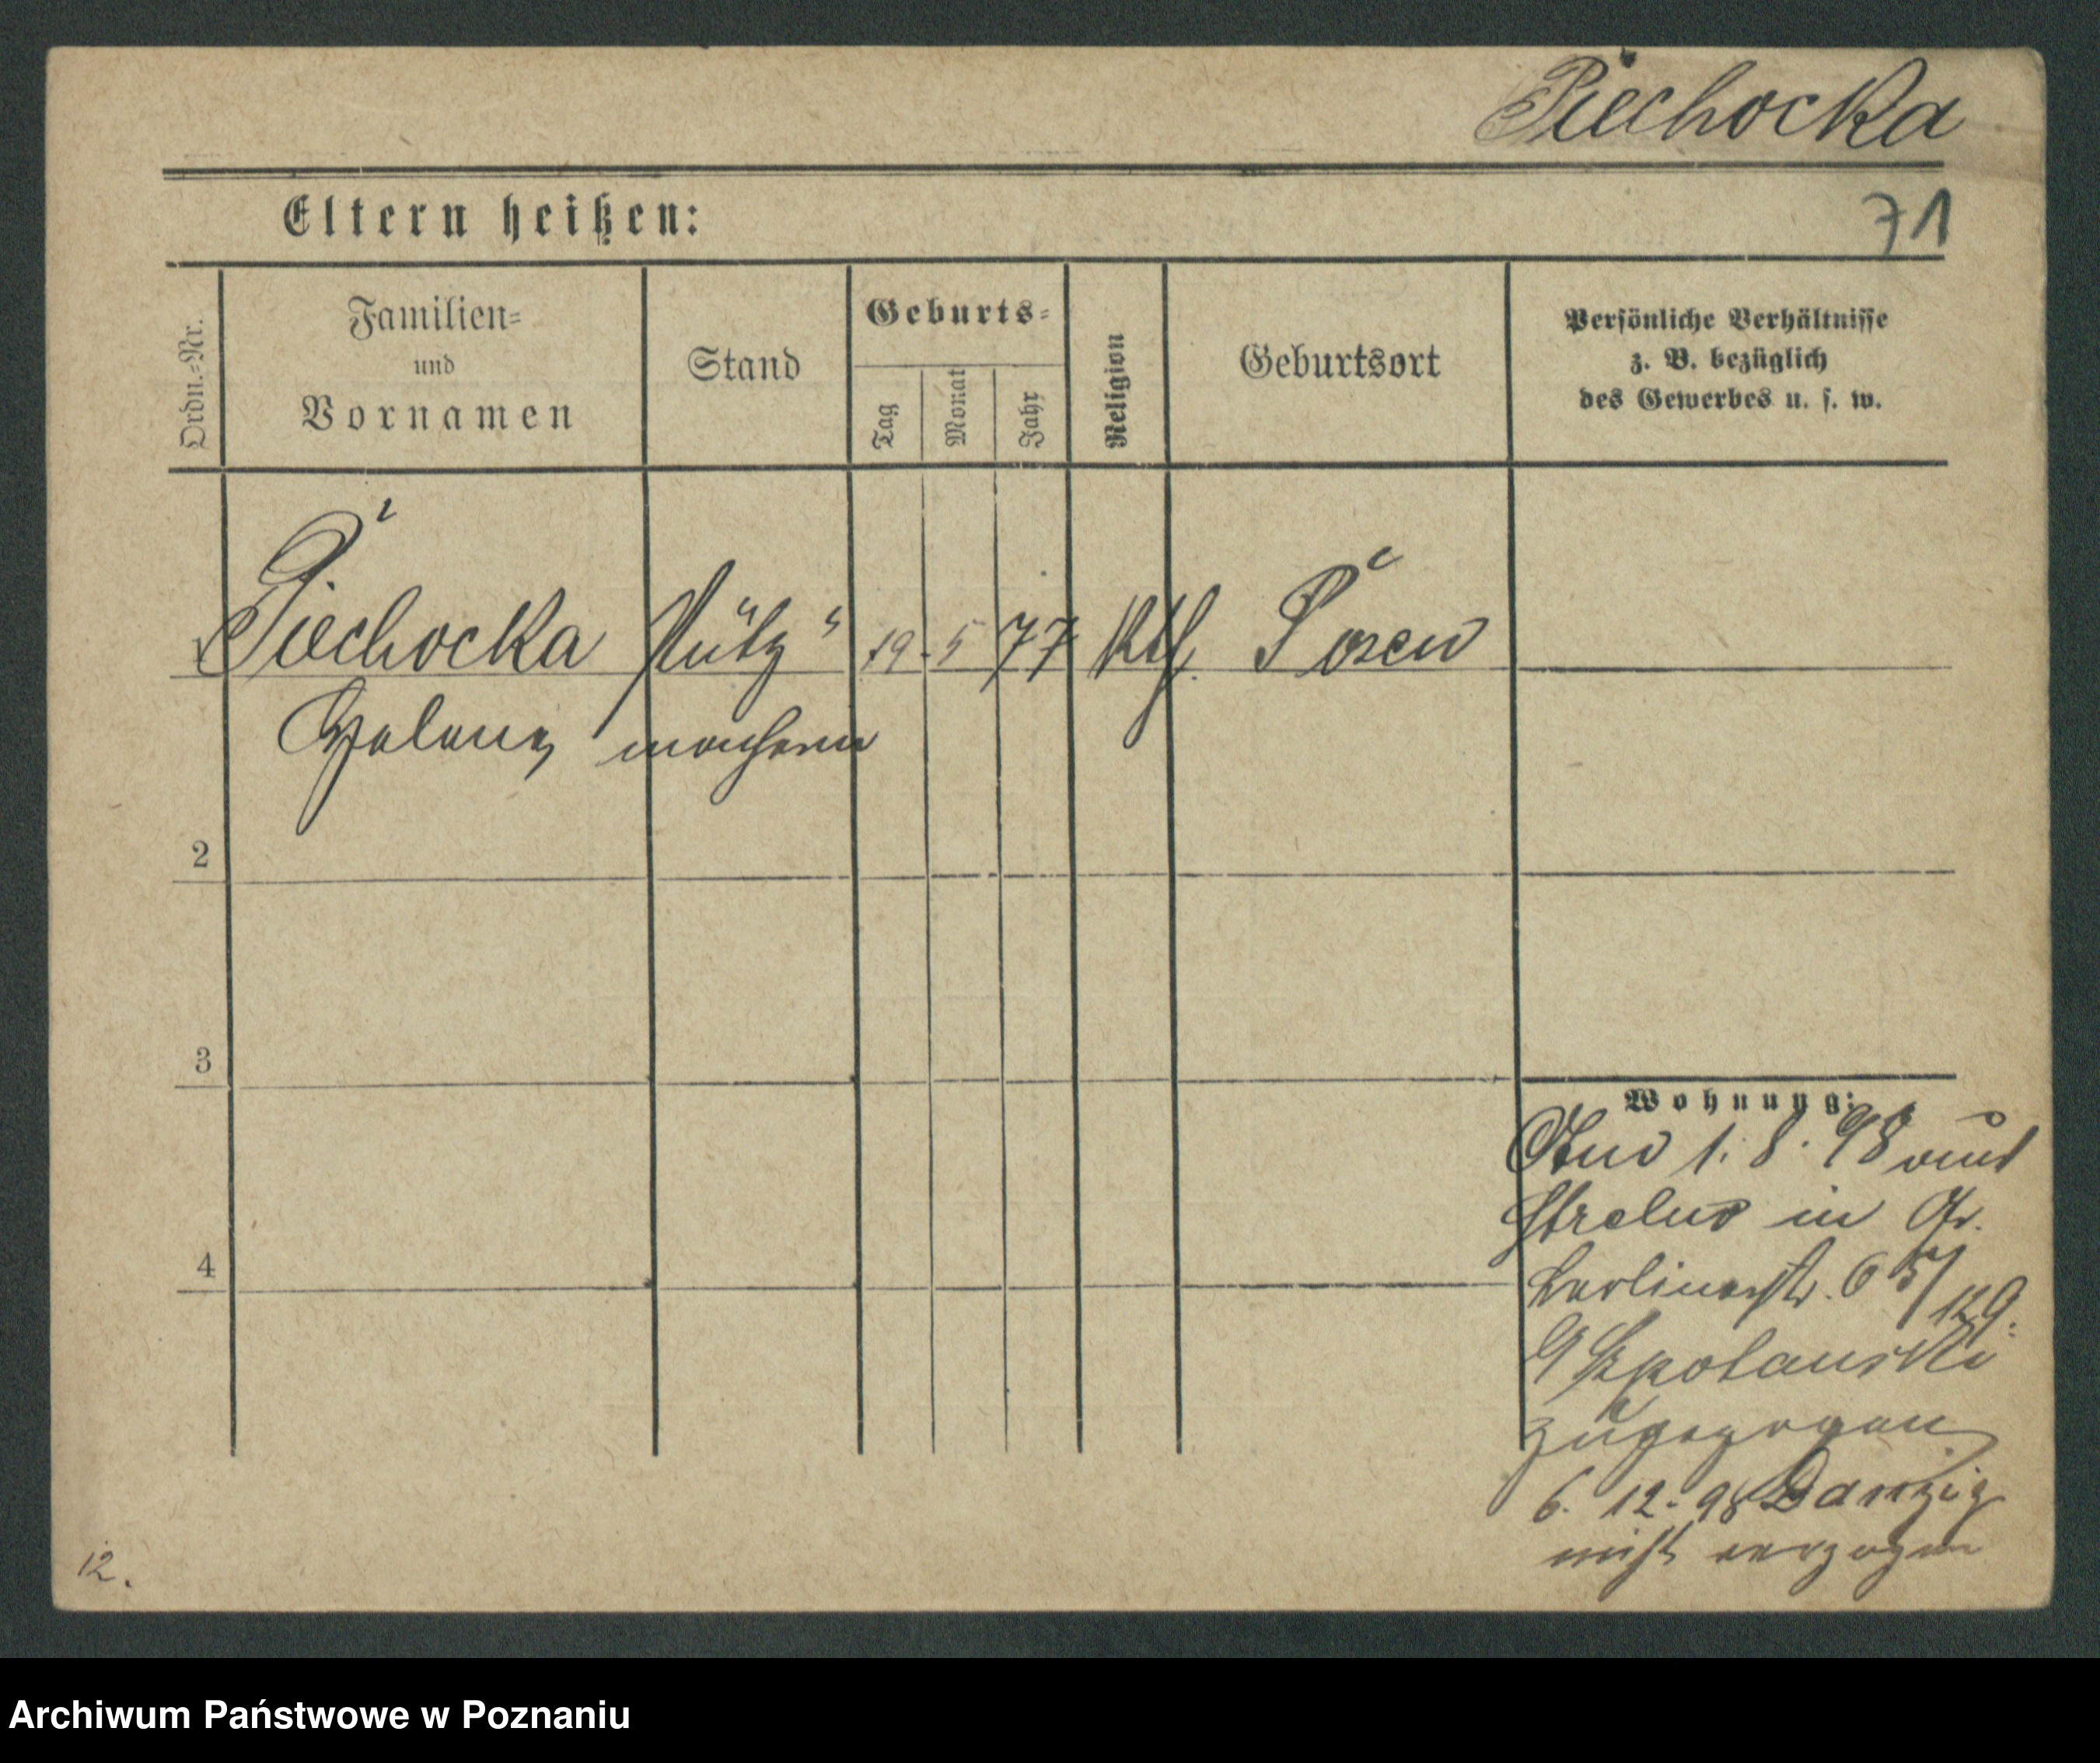 Piechocka
71
Eltern heißen:
Ordn.-Nr.
Familien- und Vornamen
Stand
Geburts-
Tag
Monat
Jahr
Religion
Geburtsort
Persönliche Verhältnisse
z. B. bezüglich
des Gewerbes u. s. w.
1 Piechocka Putz" 19. 5 77 Kth. Posen
Helene macherin
2
3
4
Wohnung:
1. 8. 98 aus
Strelno in Gr.
Berlinerstr. 65/
zugezogen
6. 12. 98 Danzig
verzogen
12.
Archiwum Państwowe w Poznaniu